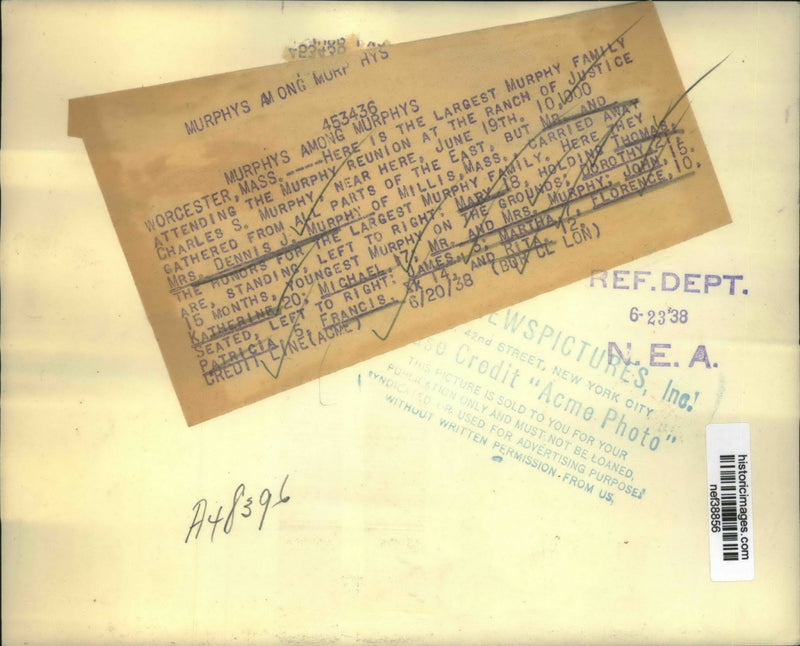 MURPHYS AMONG MURPHYS
453436
MURPHYS AMONG MURPHYS
WORCESTER, MASS. ----HERE IS THE LARGEST MURPHY FAMILY
ATTENDING THE MURPHY REUNION AT THE RANCH OF JUSTICE
CHARLES S. MURPHY NEAR HERE, JUNE 19TH. 10,000
GATHERED FROM ALL PARTS OF THE EAST, BUT MR. AND
MRS. DENNIS J. MURPHY OF MILLIS, MASS. CARRIED AWAY
THE HONORS FOR THE LARGEST MURPHY FAMILY. HERE THEY
ARE, STANDING, LEFT TO RIGHT: MARY, 18, HOLDING THOMAS,
15 MONTHS, YOUNGEST MURPHY ON THE GROUNDS; DOROTHY, 21;
KATHERINE, 20; MICHAEL, 17; MR. AND MRS. MURPHY; JOHN, 15.
SEATED, LEFT TO RIGHT: JAMES, 3; MARTHA, 7; FLORENCE, 10,
PATRICIA, 5, FRANCIS, 14, AND RITA, 12.
CREDIT LINE (ACME) 6/20/38 CL LON)
REF. DEPT.
6-23'38
N. E. A.
NEWSPICTURES, Inc.
42nd STREET, NEW YORK CITY
Credit "Acme Photo"
THIS PICTURE IS SOLD TO YOU FOR YOUR
PUBLICATION ONLY AND MUST NOT BE LOANED,
SYNDICATED OR USED FOR ADVERTISING PURPOSES
WITHOUT WRITTEN PERMISSION FROM US,
A48396
historicimages.com
nef38856